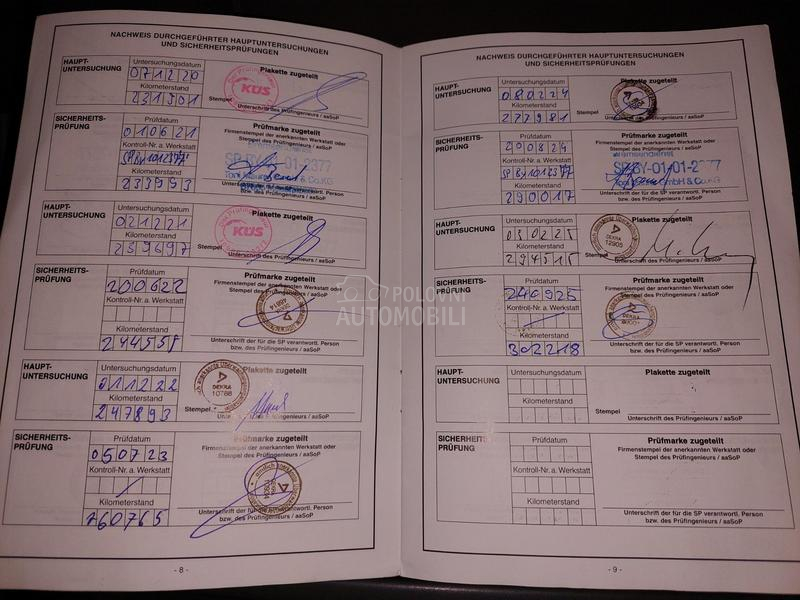 NACHWEIS DURCHGEFÜHRTER HAUPTUNTERSUCHUNGEN
UND SICHERHEITSPRÜFUNGEN
HAUPT-
UNTERSUCHUNG
Untersuchungsdatum
071220
Kilometerstand
231501
Plakette zugeteilt
KÜS
Stempel
Unterschrift des Prüfingenieurs / aaSoP
SICHERHEITS-
PRÜFUNG
Prüfdatum
010621
Kontroll-Nr. a. Werkstatt
SPBY1012377
Kilometerstand
233993
Prüfmarke zugeteilt
Firmenstempel der anerkannten Werkstatt oder
Stempel des Prüfingenieurs / aaSoP
SP-BY-01-01-2377
Unterschrift der für die SP verantwortl. Person
bzw. des Prüfingenieurs / aaSoP
HAUPT-
UNTERSUCHUNG
Untersuchungsdatum
021221
Kilometerstand
239697
Plakette zugeteilt
KÜS
Stempel
Unterschrift des Prüfingenieurs / aaSoP
SICHERHEITS-
PRÜFUNG
Prüfdatum
200622
Kontroll-Nr. a. Werkstatt
Kilometerstand
244558
Prüfmarke zugeteilt
Firmenstempel der anerkannten Werkstatt oder
Stempel des Prüfingenieurs / aaSoP
Unterschrift der für die SP verantwortl. Person
bzw. des Prüfingenieurs / aaSoP
HAUPT-
UNTERSUCHUNG
Untersuchungsdatum
011222
Kilometerstand
247893
Plakette zugeteilt
DEKRA
10788
Stempel
Unterschrift des Prüfingenieurs / aaSoP
SICHERHEITS-
PRÜFUNG
Prüfdatum
050723
Kontroll-Nr. a. Werkstatt
Kilometerstand
260765
Prüfmarke zugeteilt
Firmenstempel der anerkannten Werkstatt oder
Stempel des Prüfingenieurs / aaSoP
Unterschrift der für die SP verantwortl. Person
bzw. des Prüfingenieurs / aaSoP
- 8 -
NACHWEIS DURCHGEFÜHRTER HAUPTUNTERSUCHUNGEN
UND SICHERHEITSPRÜFUNGEN
HAUPT-
UNTERSUCHUNG
Untersuchungsdatum
080224
Kilometerstand
277981
Plakette zugeteilt
Stempel
Unterschrift des Prüfingenieurs / aaSoP
SICHERHEITS-
PRÜFUNG
Prüfdatum
200824
Kontroll-Nr. a. Werkstatt
SPBY1012377
Kilometerstand
290017
Prüfmarke zugeteilt
Firmenstempel der anerkannten Werkstatt oder
Stempel des Prüfingenieurs / aaSoP
GmbH & Co.KG
Unterschrift der für die SP verantwortl. Person
bzw. des Prüfingenieurs / aaSoP
HAUPT-
UNTERSUCHUNG
Untersuchungsdatum
030225
Kilometerstand
294515
Plakette zugeteilt
DEKRA
12905
Stempel
Unterschrift des Prüfingenieurs / aaSoP
SICHERHEITS-
PRÜFUNG
Prüfdatum
240925
Kontroll-Nr. a. Werkstatt
Kilometerstand
302218
Prüfmarke zugeteilt
Firmenstempel der anerkannten Werkstatt oder
Stempel des Prüfingenieurs / aaSoP
DEKRA
Unterschrift der für die SP verantwortl. Person
bzw. des Prüfingenieurs / aaSoP
HAUPT-
UNTERSUCHUNG
Untersuchungsdatum
Kilometerstand
Plakette zugeteilt
Stempel
Unterschrift des Prüfingenieurs / aaSoP
SICHERHEITS-
PRÜFUNG
Prüfdatum
Kontroll-Nr. a. Werkstatt
Kilometerstand
Prüfmarke zugeteilt
Firmenstempel der anerkannten Werkstatt oder
Stempel des Prüfingenieurs / aaSoP
Unterschrift der für die SP verantwortl. Person
bzw. des Prüfingenieurs / aaSoP
- 9 -
POLOVNI
AUTOMOBILI